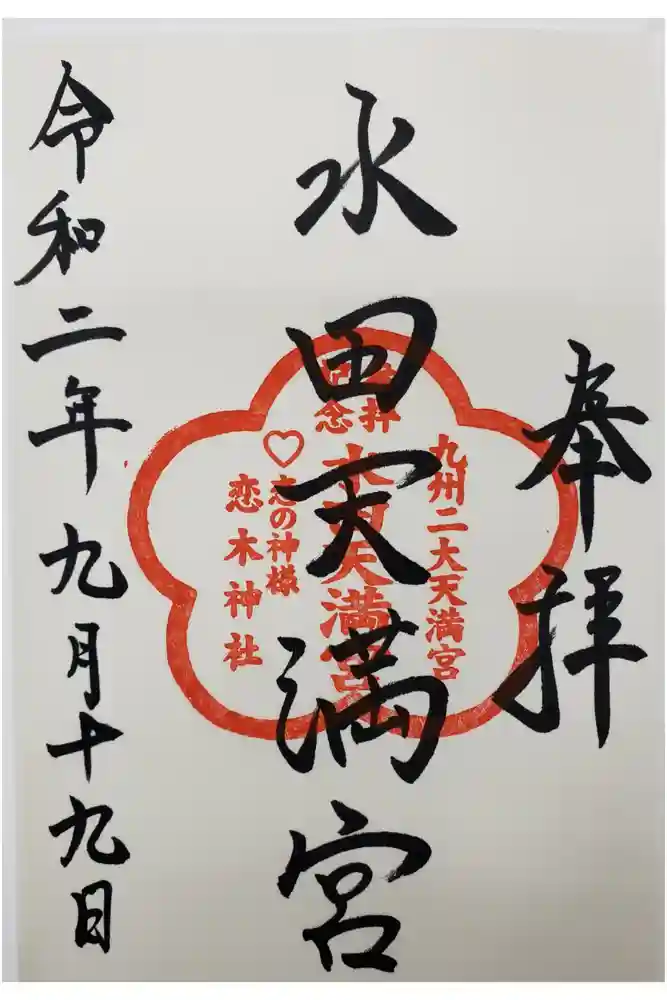 奉拝
水田天満宮
令和二年九月十九日
九州二大天満宮
参拝
記念
水田天満宮
恋の神様
恋木神社